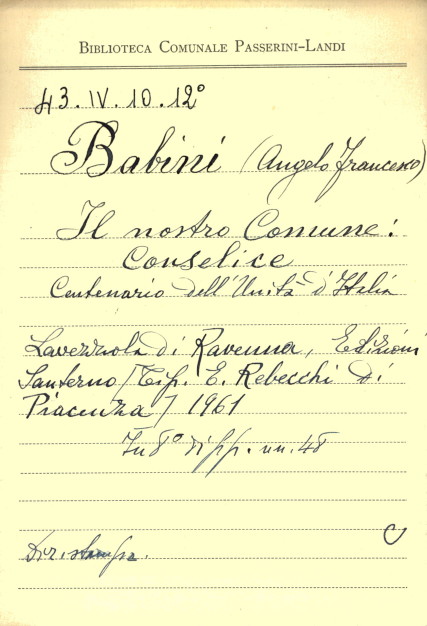 BIBLIOTECA COMUNALE PASSERINI-LANDI
43. IV. 10. 12°
Babini (Angelo Francesco)
Il nostro Comune:
Conselice
Centenario dell'Unità d'Italia
Lavezzola di Ravenna, Edizioni
Santerno / Tip. E. Rebecchi di
Piacenza / 1961
In 8° di pp. nn. 48
C
Dir. stampa.